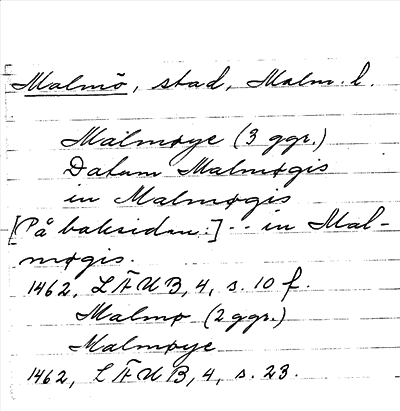 Malmö, stad, Malm. l.
Malmøye (3 ggr.)
Datum Malmøgis
in Malmøgis
[På baksidan:] -- in Mal-
møgis.
1462, LÄUB, 4, s. 10 f.
Malmø (2 ggr.)
Malmøye
1462, LÄUB, 4, s. 23.